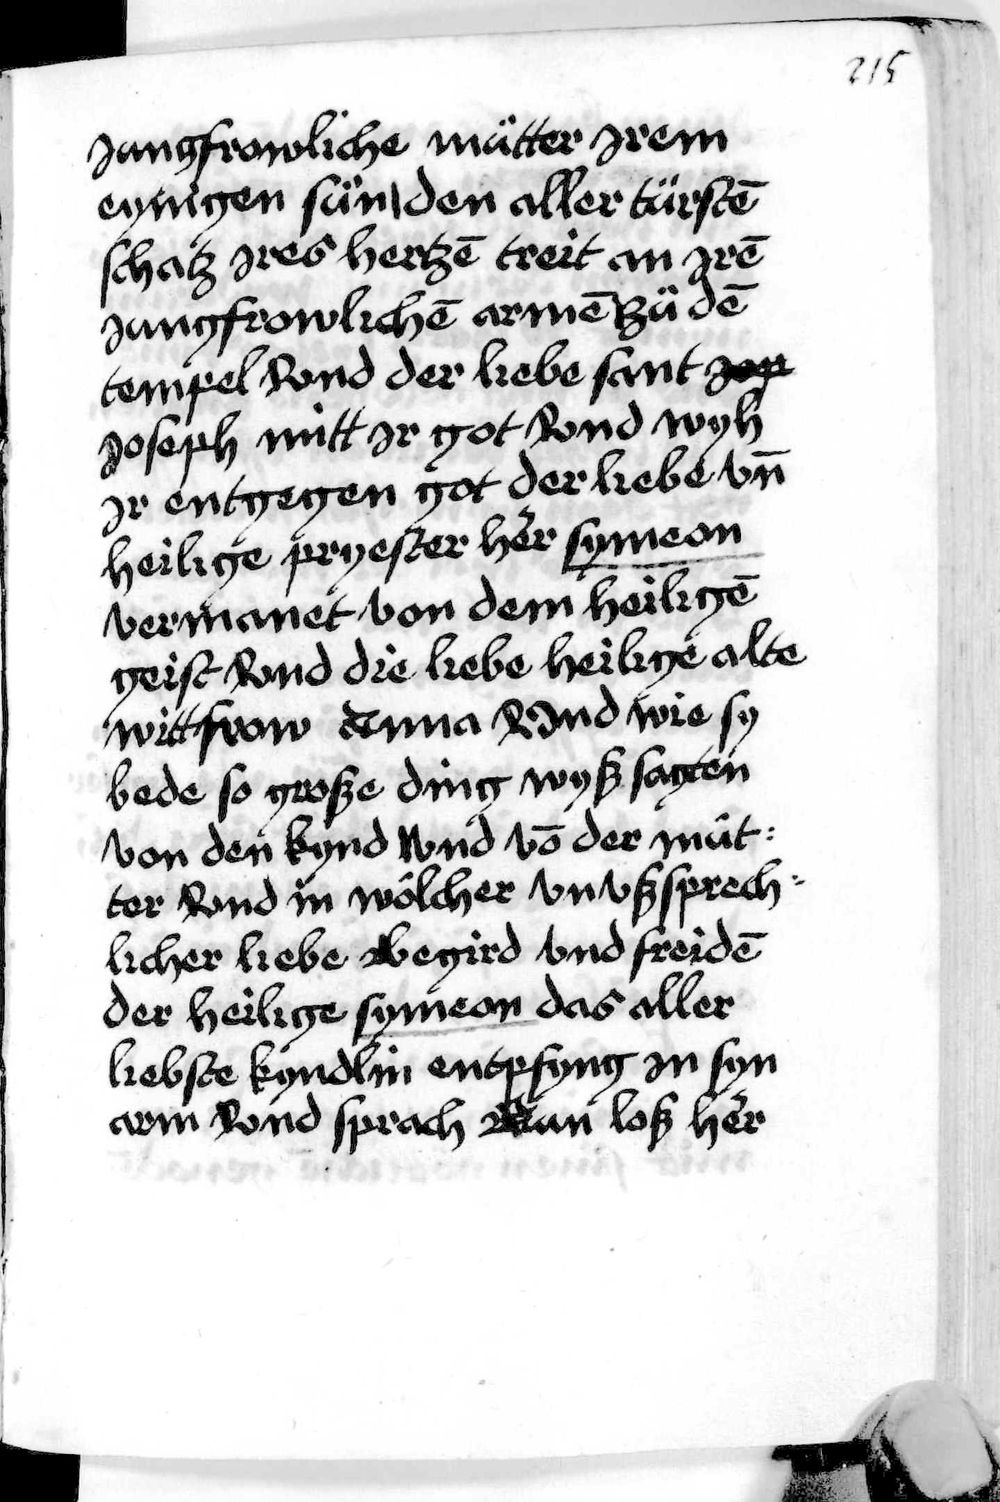 215
Jungfrowliche mütter Jrem
eynigen sün den aller türstē
schatz Jres hertzē treit an Jrē
Jungfrowlichē armē zü dē
tempel Vnd der liebe sant
Joseph mitt Jr got Vnd wyh
Jr entgegen got der liebe vn̄
heilige pryester her symeon
vermanet von dem heiligē
geist Vnd die liebe heilige alte
wittfrow Anna Vnd wie sy
bede so große ding wyß sagten
von den kynd Vnd vō der müt:
ter Vnd in wölcher vnußsprech:
licher liebe begird vnd freidē
der heilige symeon das aller
liebste kyndlin entpfyng in syn
arm Vnd sprach Nun loß her